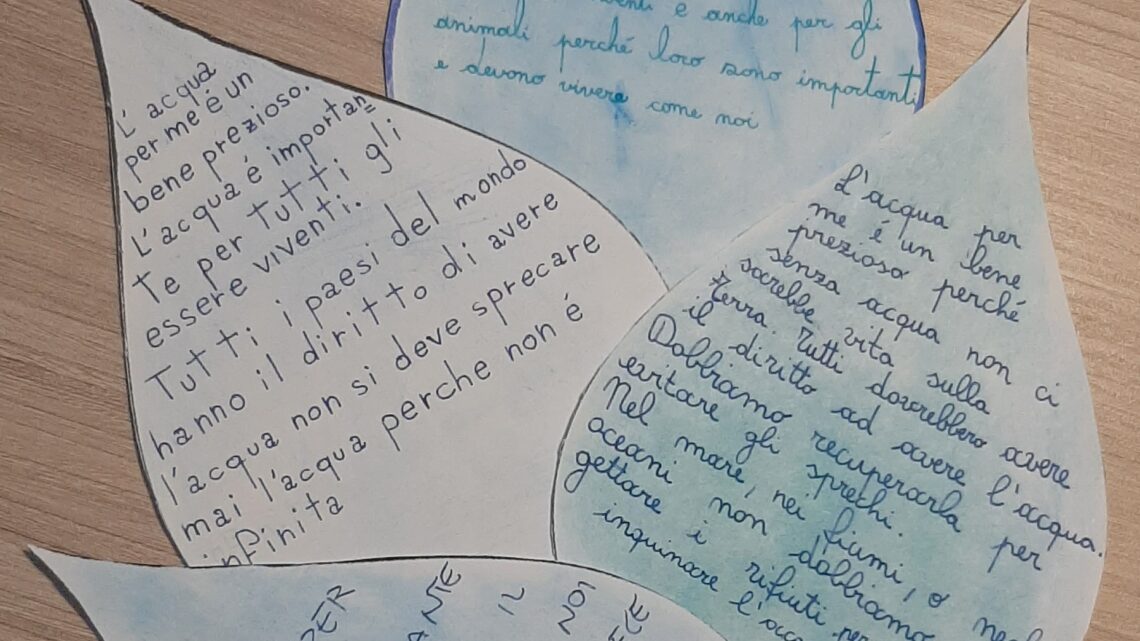 e anche per gli
animali perché loro sono importanti
e devono vivere come noi
L'acqua
per me é un
bene prezioso.
L'acqua é importan=
te per tutti gli
essere viventi.
Tutti i paesi del mondo
hanno il diritto di avere
l'acqua non si deve sprecare
mai l'acqua perche non é
infinita
L'acqua per
me é un bene
prezioso perché
senza acqua non ci
sarebbe vita sulla
terra. Tutti dovrebbero avere
il diritto ad avere l'acqua.
Dobbiamo recuperarla per
evitare gli sprechi.
Nel mare, nei fiumi, o
oceani non dobbiamo
gettare i rifiuti per
inquinare
PER
IL
NOI